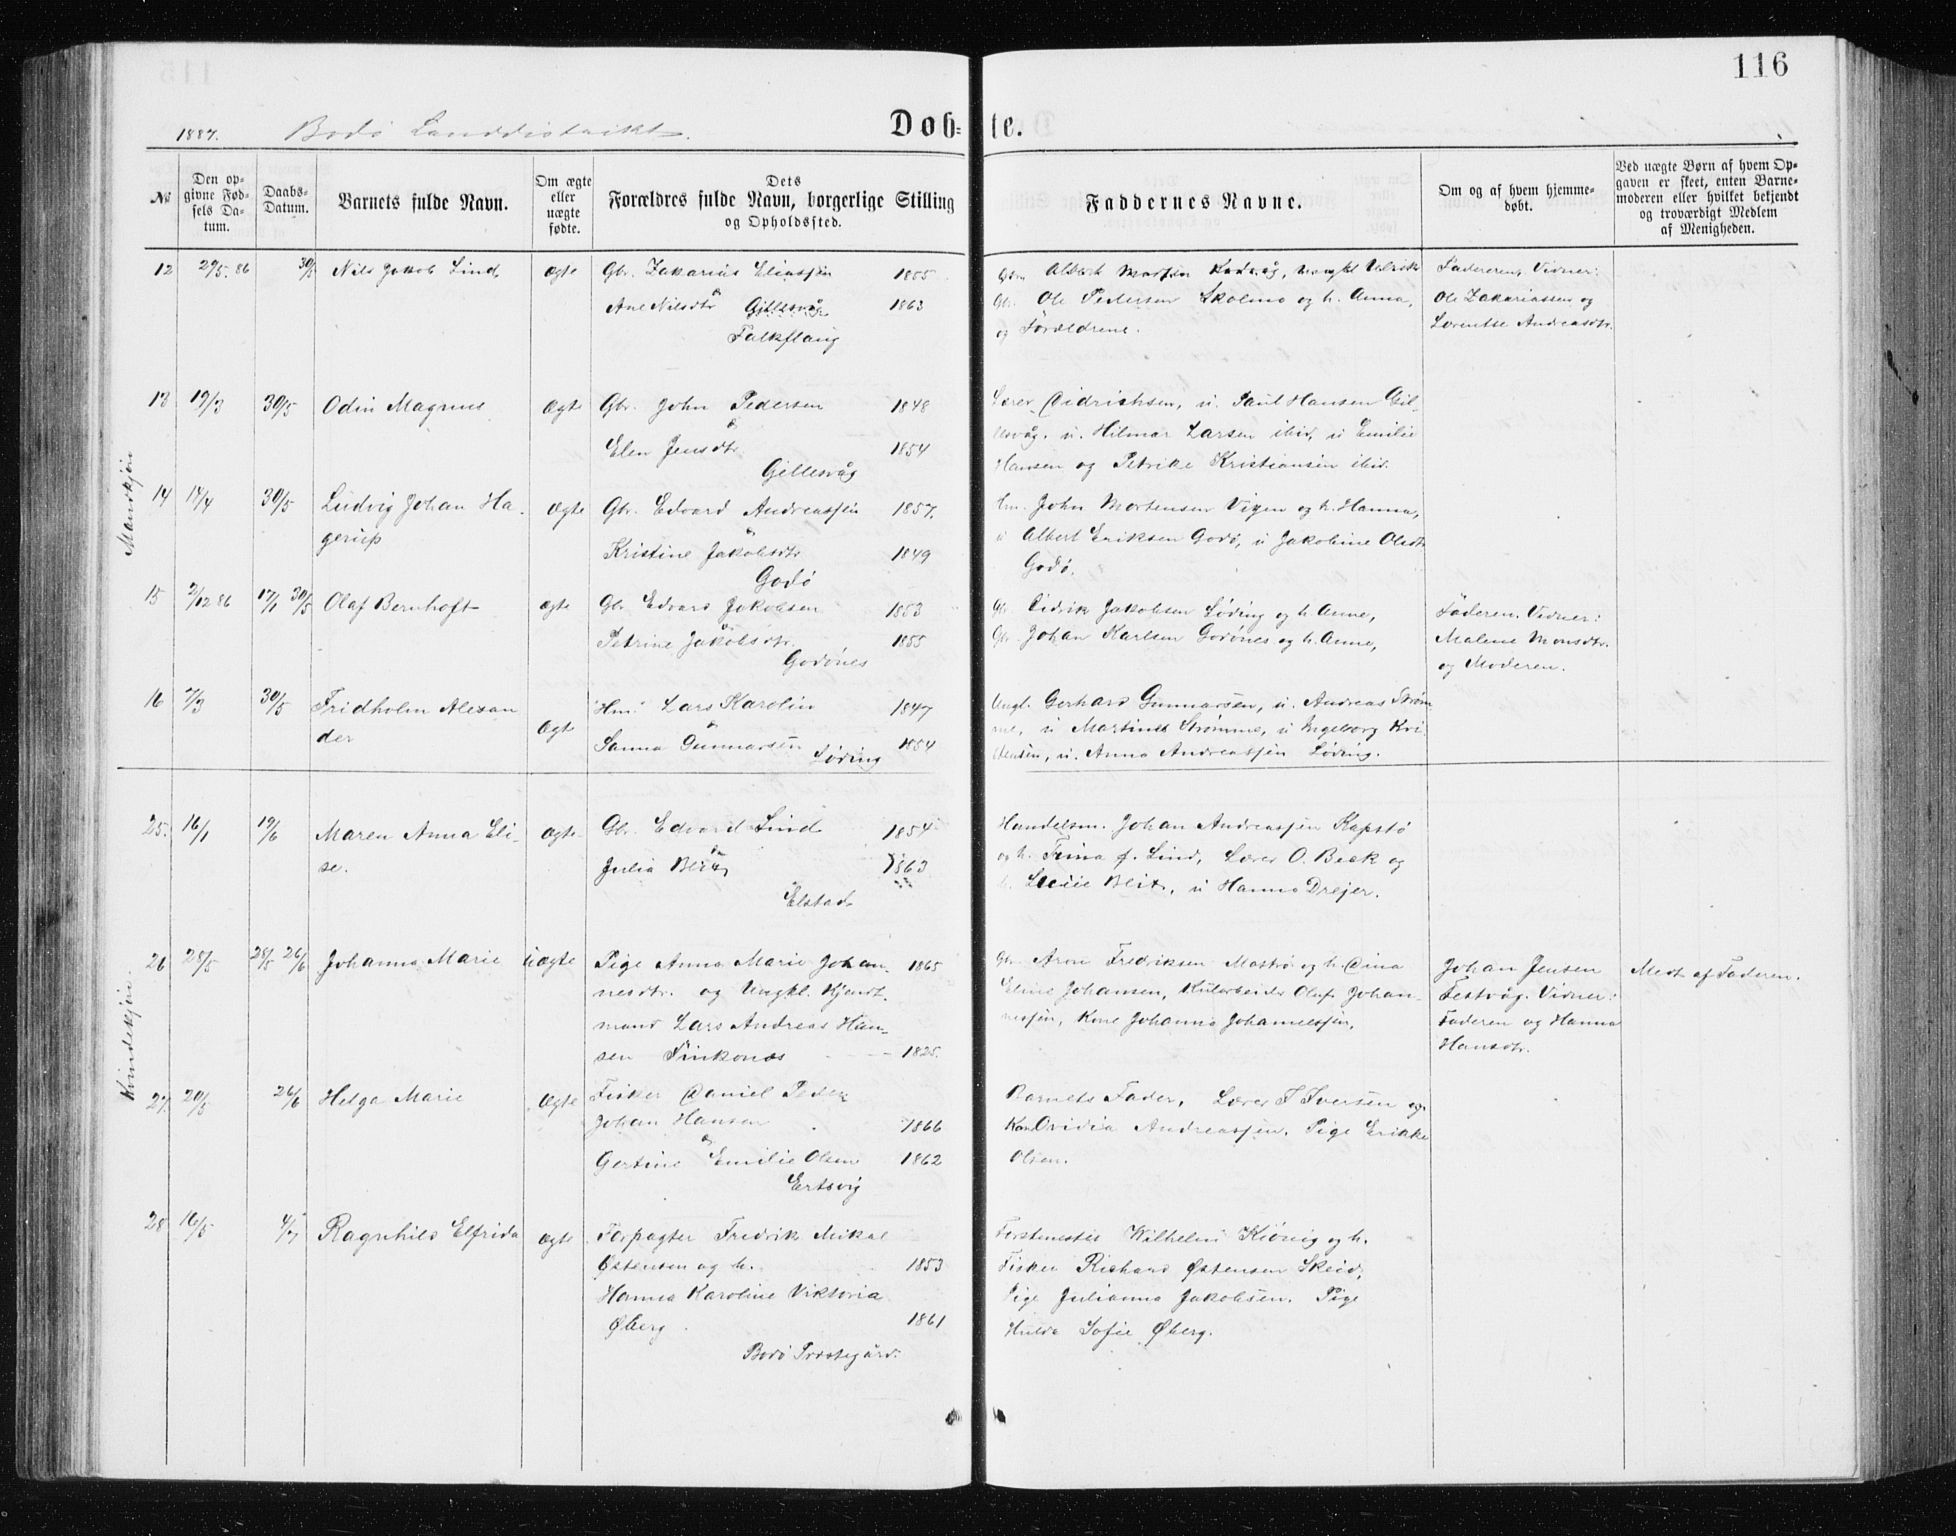 116
1887. Bodø Landdistrikt.
Døb-te.
№
Den op-
givne Fød-
sels Da-
tum.
Daabs-
Datum.
Barnets fulde Navn.
Om ægte
eller
uægte
fødte.
Dets
Forældres fulde Navn, borgerlige Stilling
og Opholdssted.
Faddernes Navne.
Om og af hvem hjemme-
døbt.
Ved uægte Børn af hvem Op-
gaven er skeet, enten Barne-
moderen eller hvilket bekjendt
og troværdigt Medlem
af Menigheden.
Mandkjøn
12 29/5. 86 30/5 Nils Jakob Lind ægte Gbr. Zakarias Eliassen 1855
Ane Nilsdtr Gillesvåg 1863
Falkflaug
Albert Morten
Gbr. Ole Pedersen Skolmo og h. Anna,
og Forældrene.
Faderen, Vidner:
Ole Zakariassen og
Lorentse Andreasdtr.
13 19/3 30/5 Odin Magnus ægte Gbr. John Pedersen 1848
Elen Jensdtr 1854
Gillesvåg
Lærer Didrichsen, u. Paul Hansen Gil-
lesvåg. u. Hilmar Larsen ibid, u Emilie
Hansen og Petrike Kristiansen ibid.
14 14/4 30/5 Ludvig Johan Ha-
gerup ægte Gbr. Edvard Andreassen 1857.
Kristine Jakobsdtr 1849
Godø
Hm. John Mortensen Vigen og h. Hanna,
u Albert Eriksen Godø, u Jakobine Olsdtr
Godø.
15 2/12 86 17/1 30/5 Olaf Bernhoft ægte Gbr. Edvard Jakobsen 1853
Petrine Jakobsdtr. 1855
Godønes
Gbr. Didrik Jakobsen Løding og h. Anne,
Gbr. Johan Karlsen Godønes og h. Anne,
Faderen. Vidner:
Malene Monsdtr.
og Moderen.
16 7/3 30/5 Fridholm Alexan
der ægte Hm. Lars Karolin 1847
Sanna Gunnarsen 1854
Løding
Ungk. Gerhard Gunnarsen, u. Andreas Strøm
me, u Martines Strømme, u Ingeborg Kri
stensen, u. Anna Andreassen Løding.
Kvindekjøn.
25. 16/1 19/6 Maren Anna Eli-
se. ægte Gbr. Edvard Lind 1854
Julia Blix 1863
Elstad
Handelsm. Johan Andreassen Kapstø
og h. Trina f. Lind, Lærer O. Beck og
h. Lucie Blix, u Hanna Drejer.
26 28/5 28/5 26/6 Johanna Marie uægte Pige Anna Marie Johan- 1865
nesdtr. og Ungkl. Kjendt-
mand Lars Andreas Han-
sen Finkonæs 1825.
Gbr Aron Fredriksen Mastrø og h. Dina
Eline Johansen, Kularbeider Oluf Johan-
nessen, Kone Johanna Johannessen,
Johan Jensen
Festvåg. Vidner:
Faderen og Hanna
Hansdtr.
Med af Faderen.
27. 20/5 26/6 Helga Marie ægte Fisker Daniel Peder
Johan Hansen 1866
Gertine Emilie Olsen 1862
Ertsvig
Barnets Fader, Lærer J Iversen og
Kon Ovidia Andreassen. Pige Erikke
Olsen.
28. 16/5 4/7 Ragnhild Elfrida ægte Forpagter Fredrik Mikal
Østensen og h. 1853
Hanna Karoline Viktoria
Øberg 1861
Bodø Præstegård.
Forstmester Wilhelm Kiönig og h.
Fisker Richard Østensen Skeid,
Pige Julianna Jakobsen. Pige
Hulda Sofie Øberg.